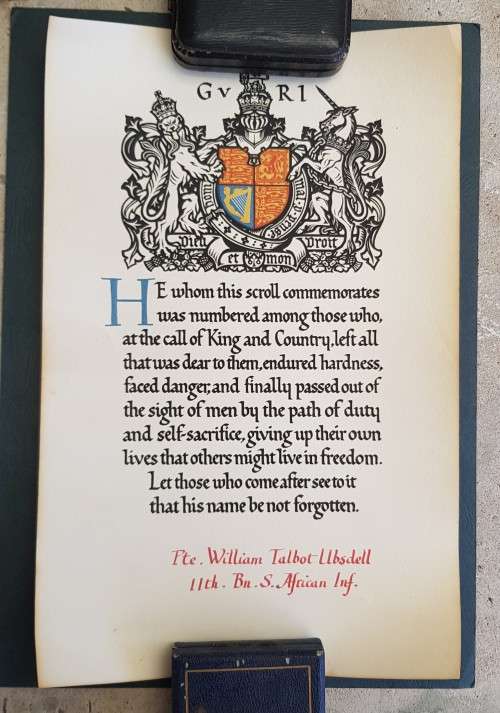 G V R I
Honi soit qui mal y pense
Dieu et mon Droit
HE whom this scroll commemorates
was numbered among those who,
at the call of King and Country, left all
that was dear to them, endured hardness,
faced danger, and finally passed out of
the sight of men by the path of duty
and self-sacrifice, giving up their own
lives that others might live in freedom.
Let those who come after see to it
that his name be not forgotten.
Pte. William Talbot-Ubsdell
11th. Bn. S. African Inf.